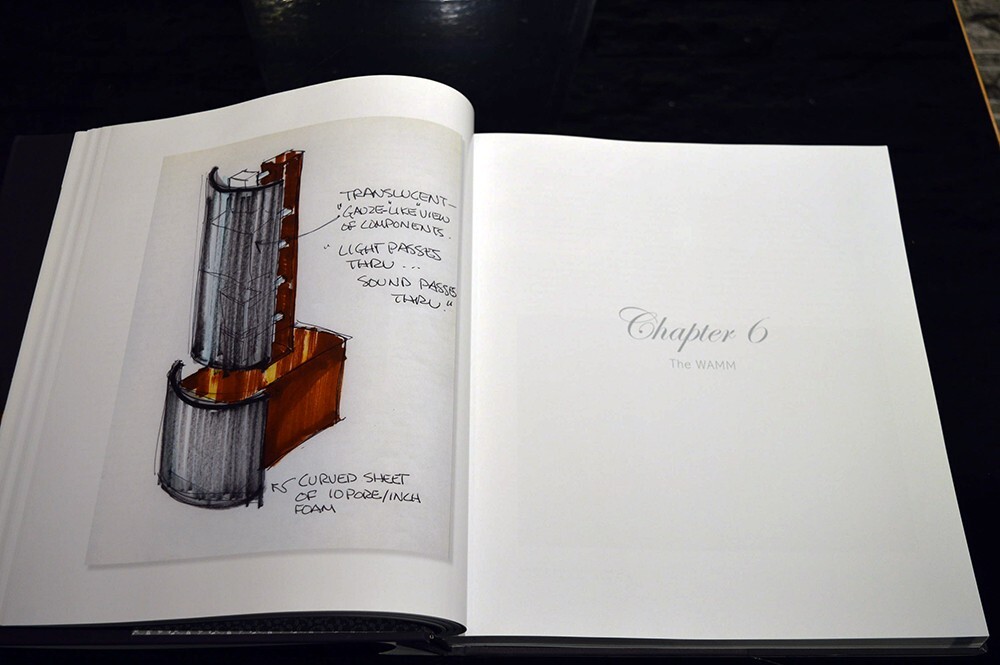 TRANSLUCENT—
"GAUZE-LIKE" VIEW
OF COMPONENTS.
"LIGHT PASSES
THRU ...
SOUND PASSES
THRU."
CURVED SHEET
OF 10 PORE/INCH
FOAM
Chapter 6
The WAMM